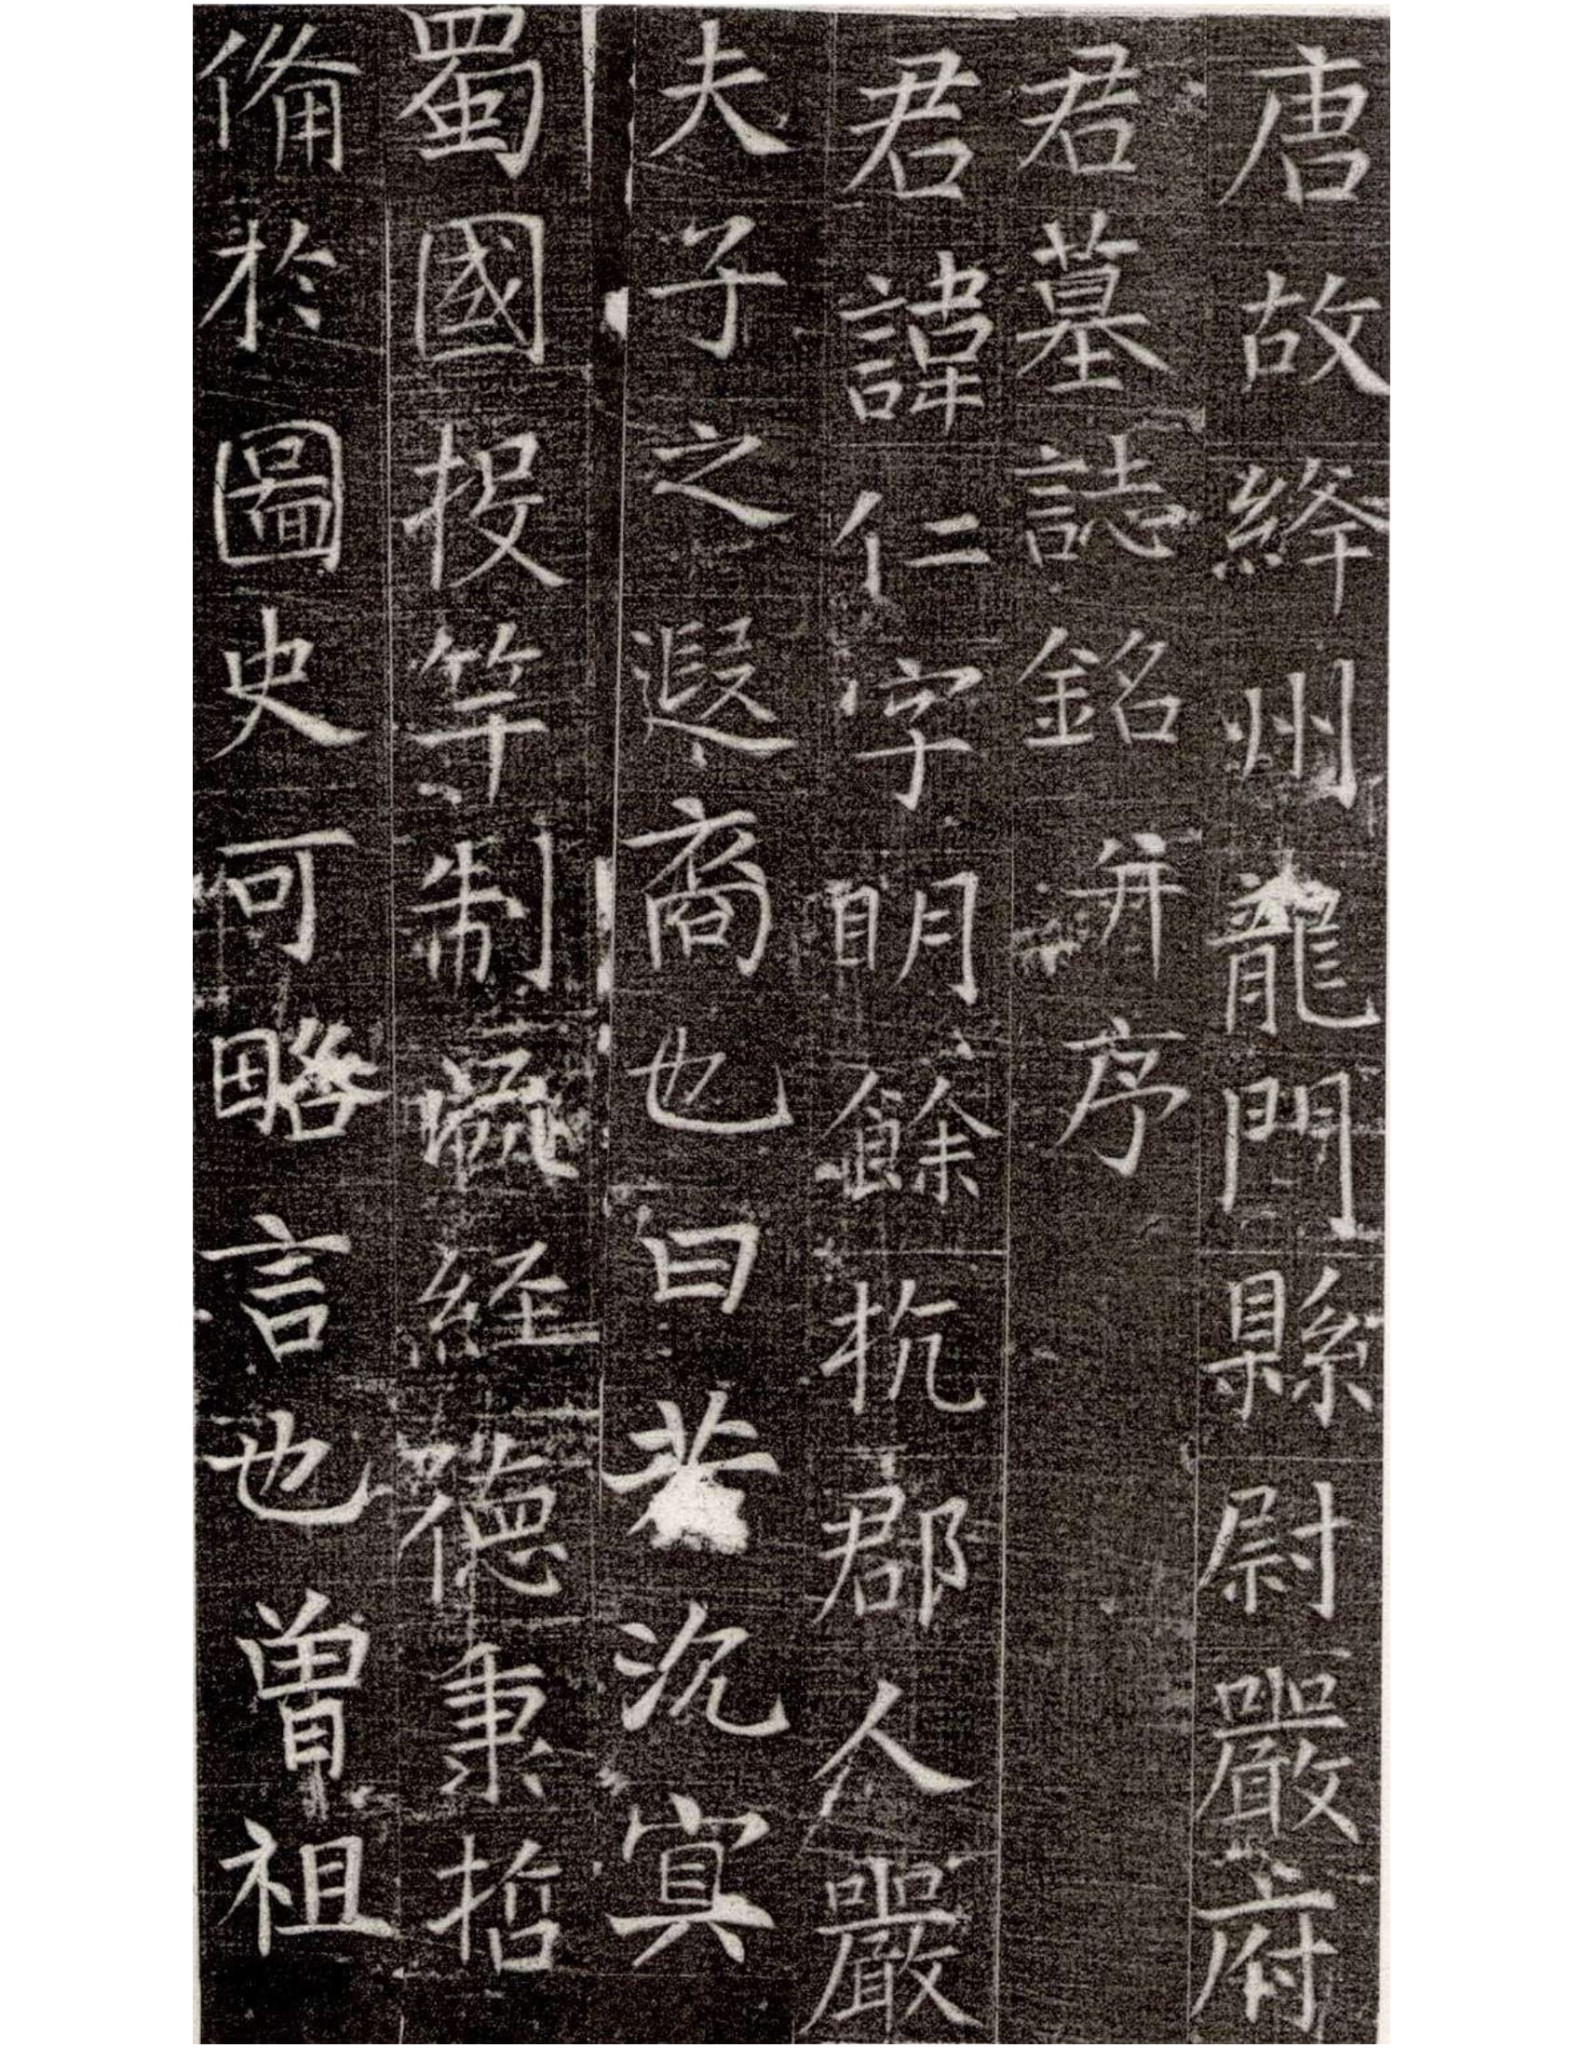 唐故絳州龍門縣尉嚴府
君墓誌銘并序
君諱仁字明餘杭郡人嚴
夫子之遐裔也曰若沉冥
蜀國投竿制瀛經德秉哲
俻於圖史可略言也曾祖